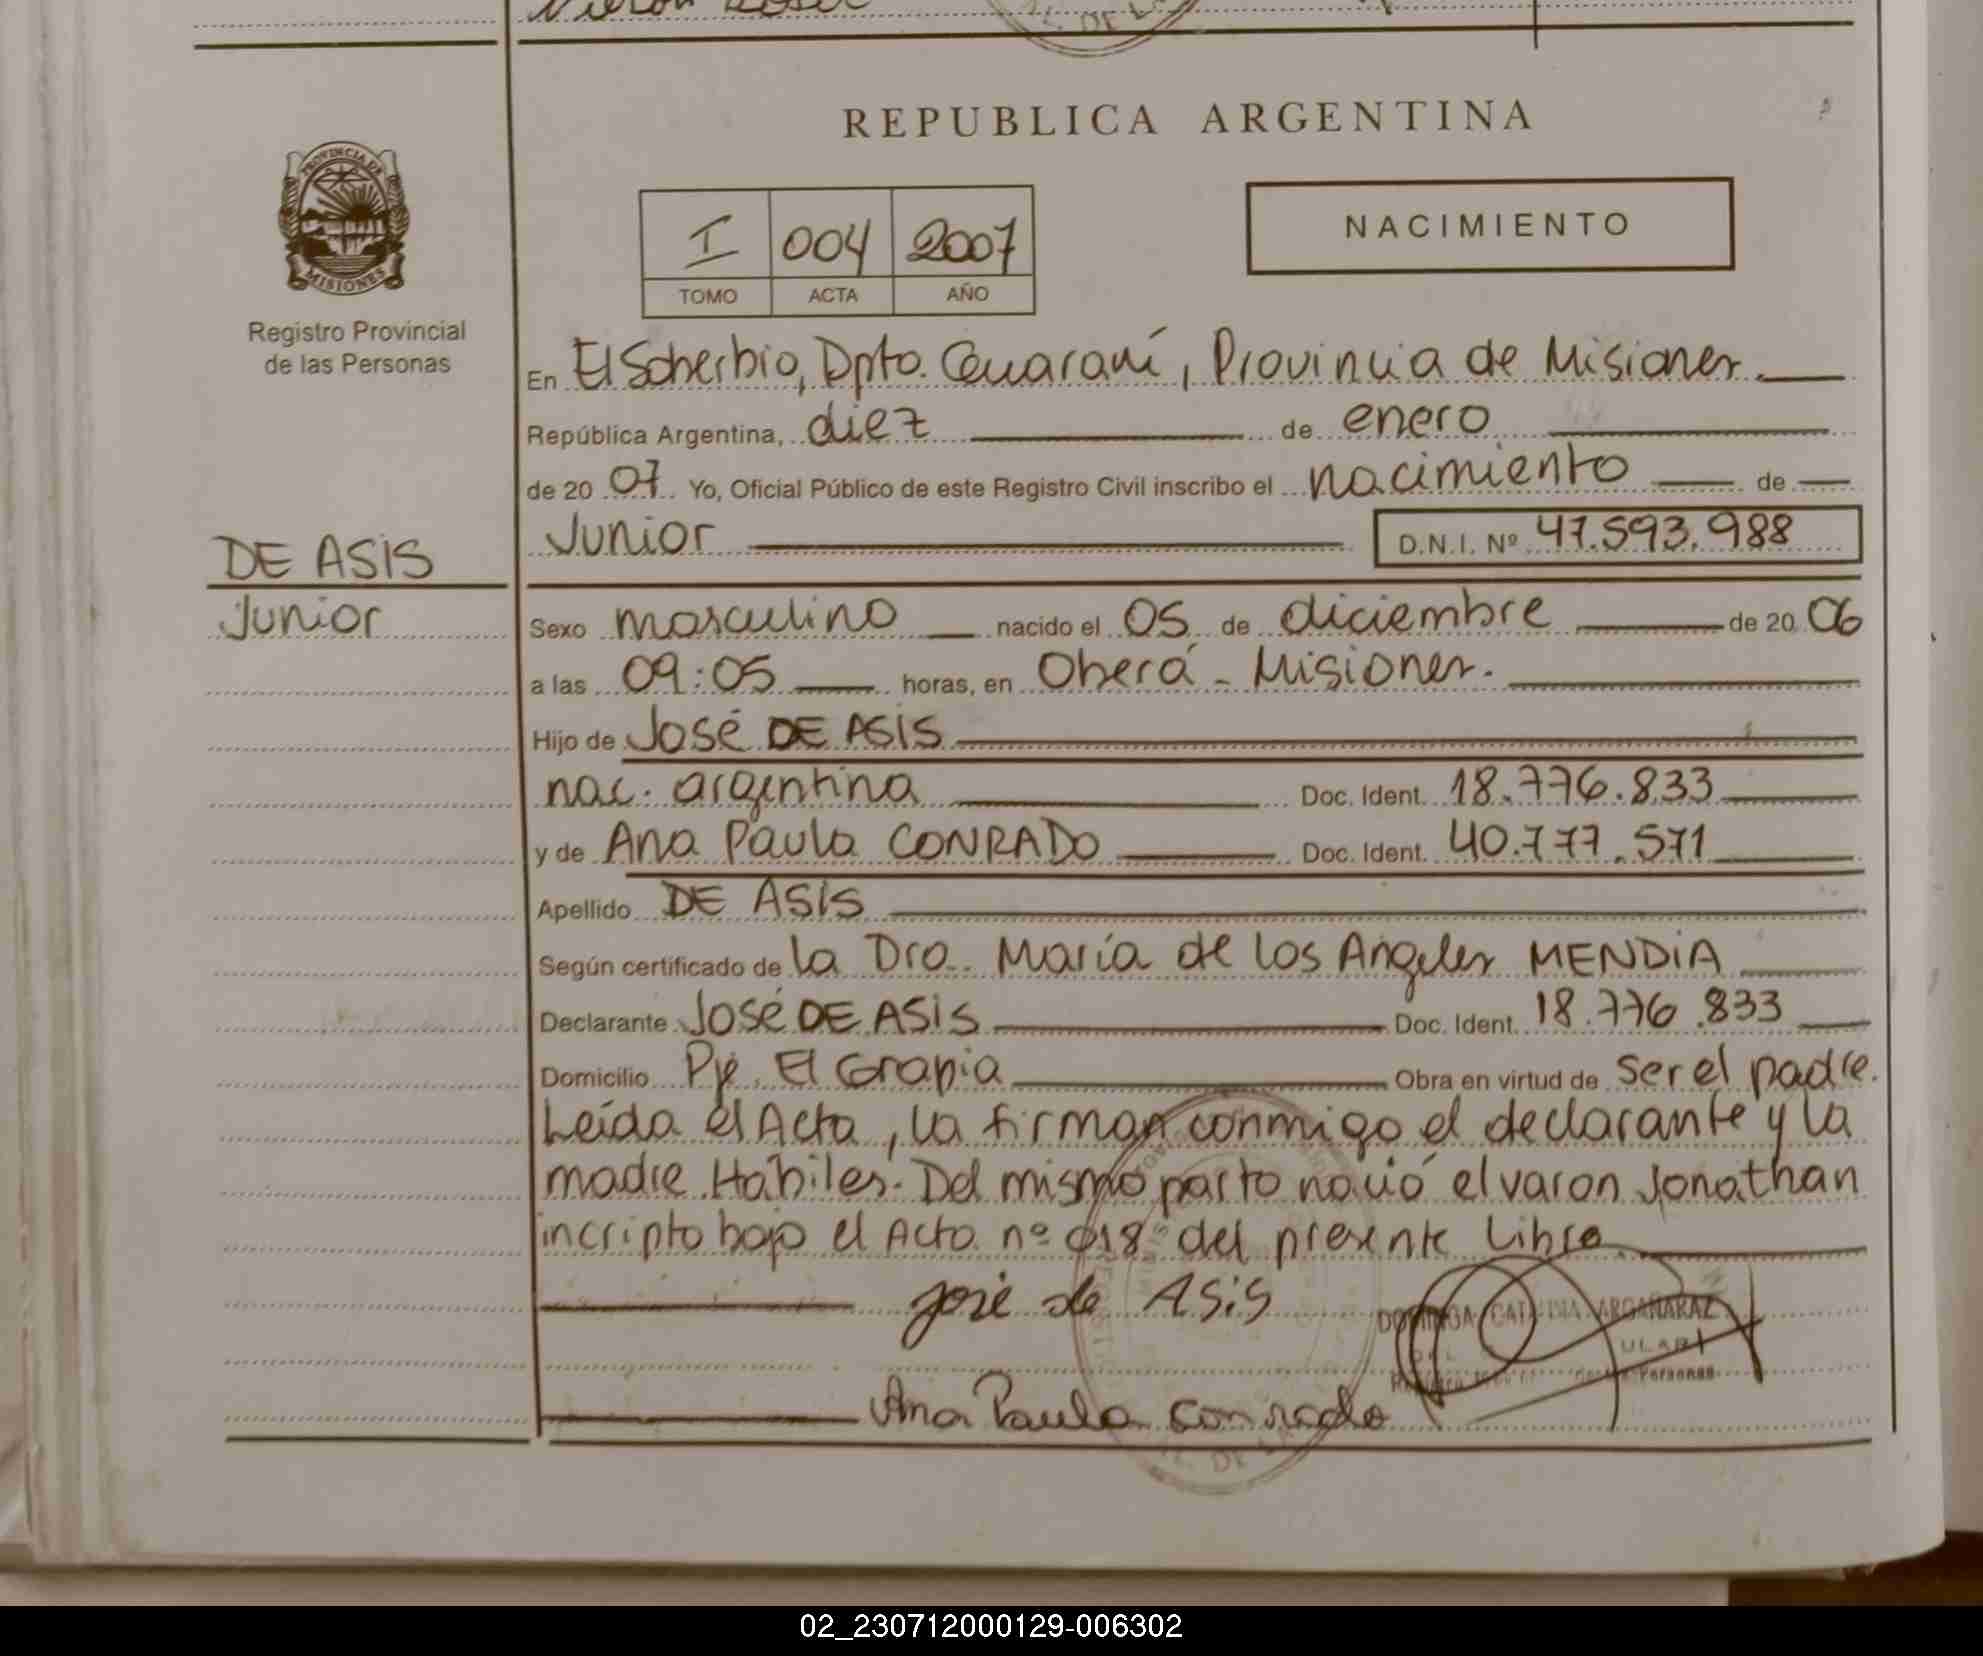 REPUBLICA ARGENTINA
PROVINCIA DE
MISIONES
Registro Provincial
de las Personas
I 004 2007
TOMO ACTA AÑO
NACIMIENTO
En El Soberbio, Dpto. Guaraní, Provincia de Misiones.
República Argentina, diez de enero
de 20 07 Yo, Oficial Público de este Registro Civil inscribo el nacimiento de
DE ASIS
Junior
Junior D.N.I. Nº 47.593.988
Sexo masculino nacido el 05 de diciembre de 20 06
a las 09:05 horas, en Oberá - Misiones.
Hijo de José DE ASIS
nac. argentina Doc. Ident. 18.776.833
y de Ana Paula CONRADO Doc. Ident. 40.777.571
Apellido DE ASIS
Según certificado de la Dra. María de los Angeles MENDIA
Declarante José DE ASIS Doc. Ident. 18.776.833
Domicilio Pje. El Grapia Obra en virtud de ser el padre.
Leída el Acta, la firman conmigo el declarante y la
madre. Hábiles. Del mismo parto nació el varon Jonathan
incripto bajo el Acta nº 018 del presente Libro.
José de Asis
DOMINGA CATALINA ARGAÑARAZ
Personas
Ana Paula Conrado
02_230712000129-006302